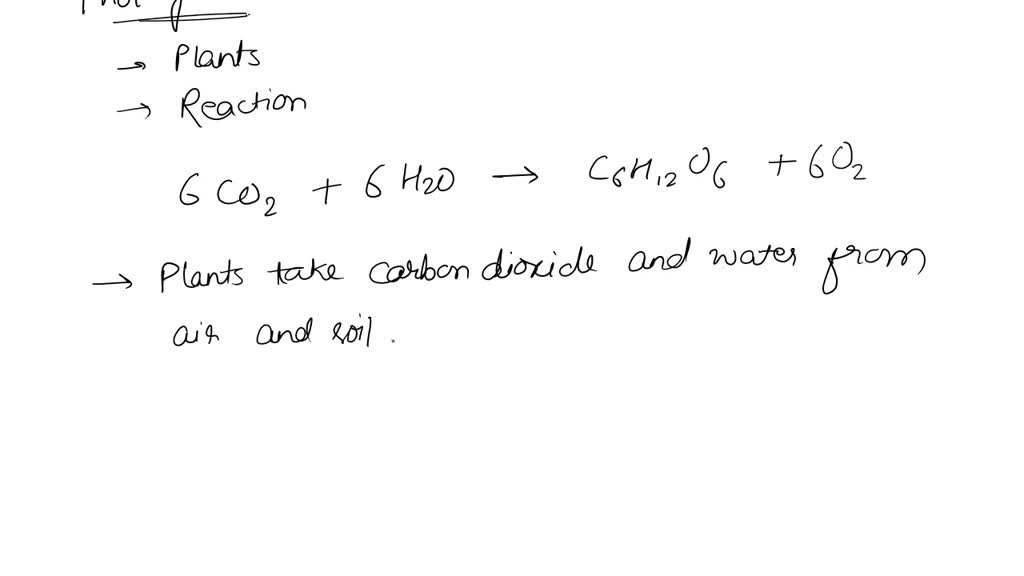 → Plants
→ Reaction
6 CO₂ + 6 H₂O → C₆H₁₂O₆ + 6O₂
→ Plants take carbon dioxide and water from
air and soil.